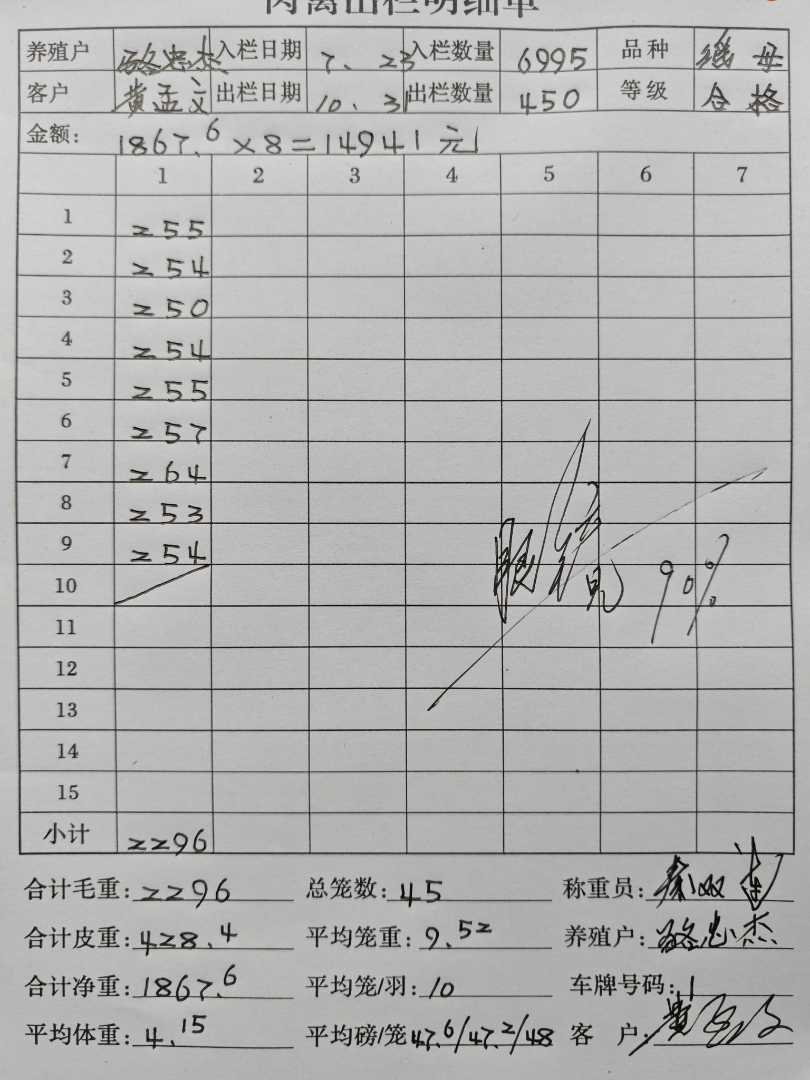 肉禽出栏明细单
养殖户 骆忠杰 入栏日期 7.23 入栏数量 6995 品种 母
客户 黄孟文 出栏日期 10.31 出栏数量 450 等级 合格
金额: 1867.6×8=14941元
1 2 3 4 5 6 7
1 255
2 254
3 250
4 254
5 255
6 257
7 264
8 253
9 254
10
11
12
13
14
15
小计 2296
合计毛重: 2296 总笼数: 45 称重员:
合计皮重: 428.4 平均笼重: 9.52 养殖户: 骆忠杰
合计净重: 1867.6 平均笼/羽: 10 车牌号码: 1
平均体重: 4.15 平均磅/笼 47.6/47.2/48 客户: 黄孟文
90%